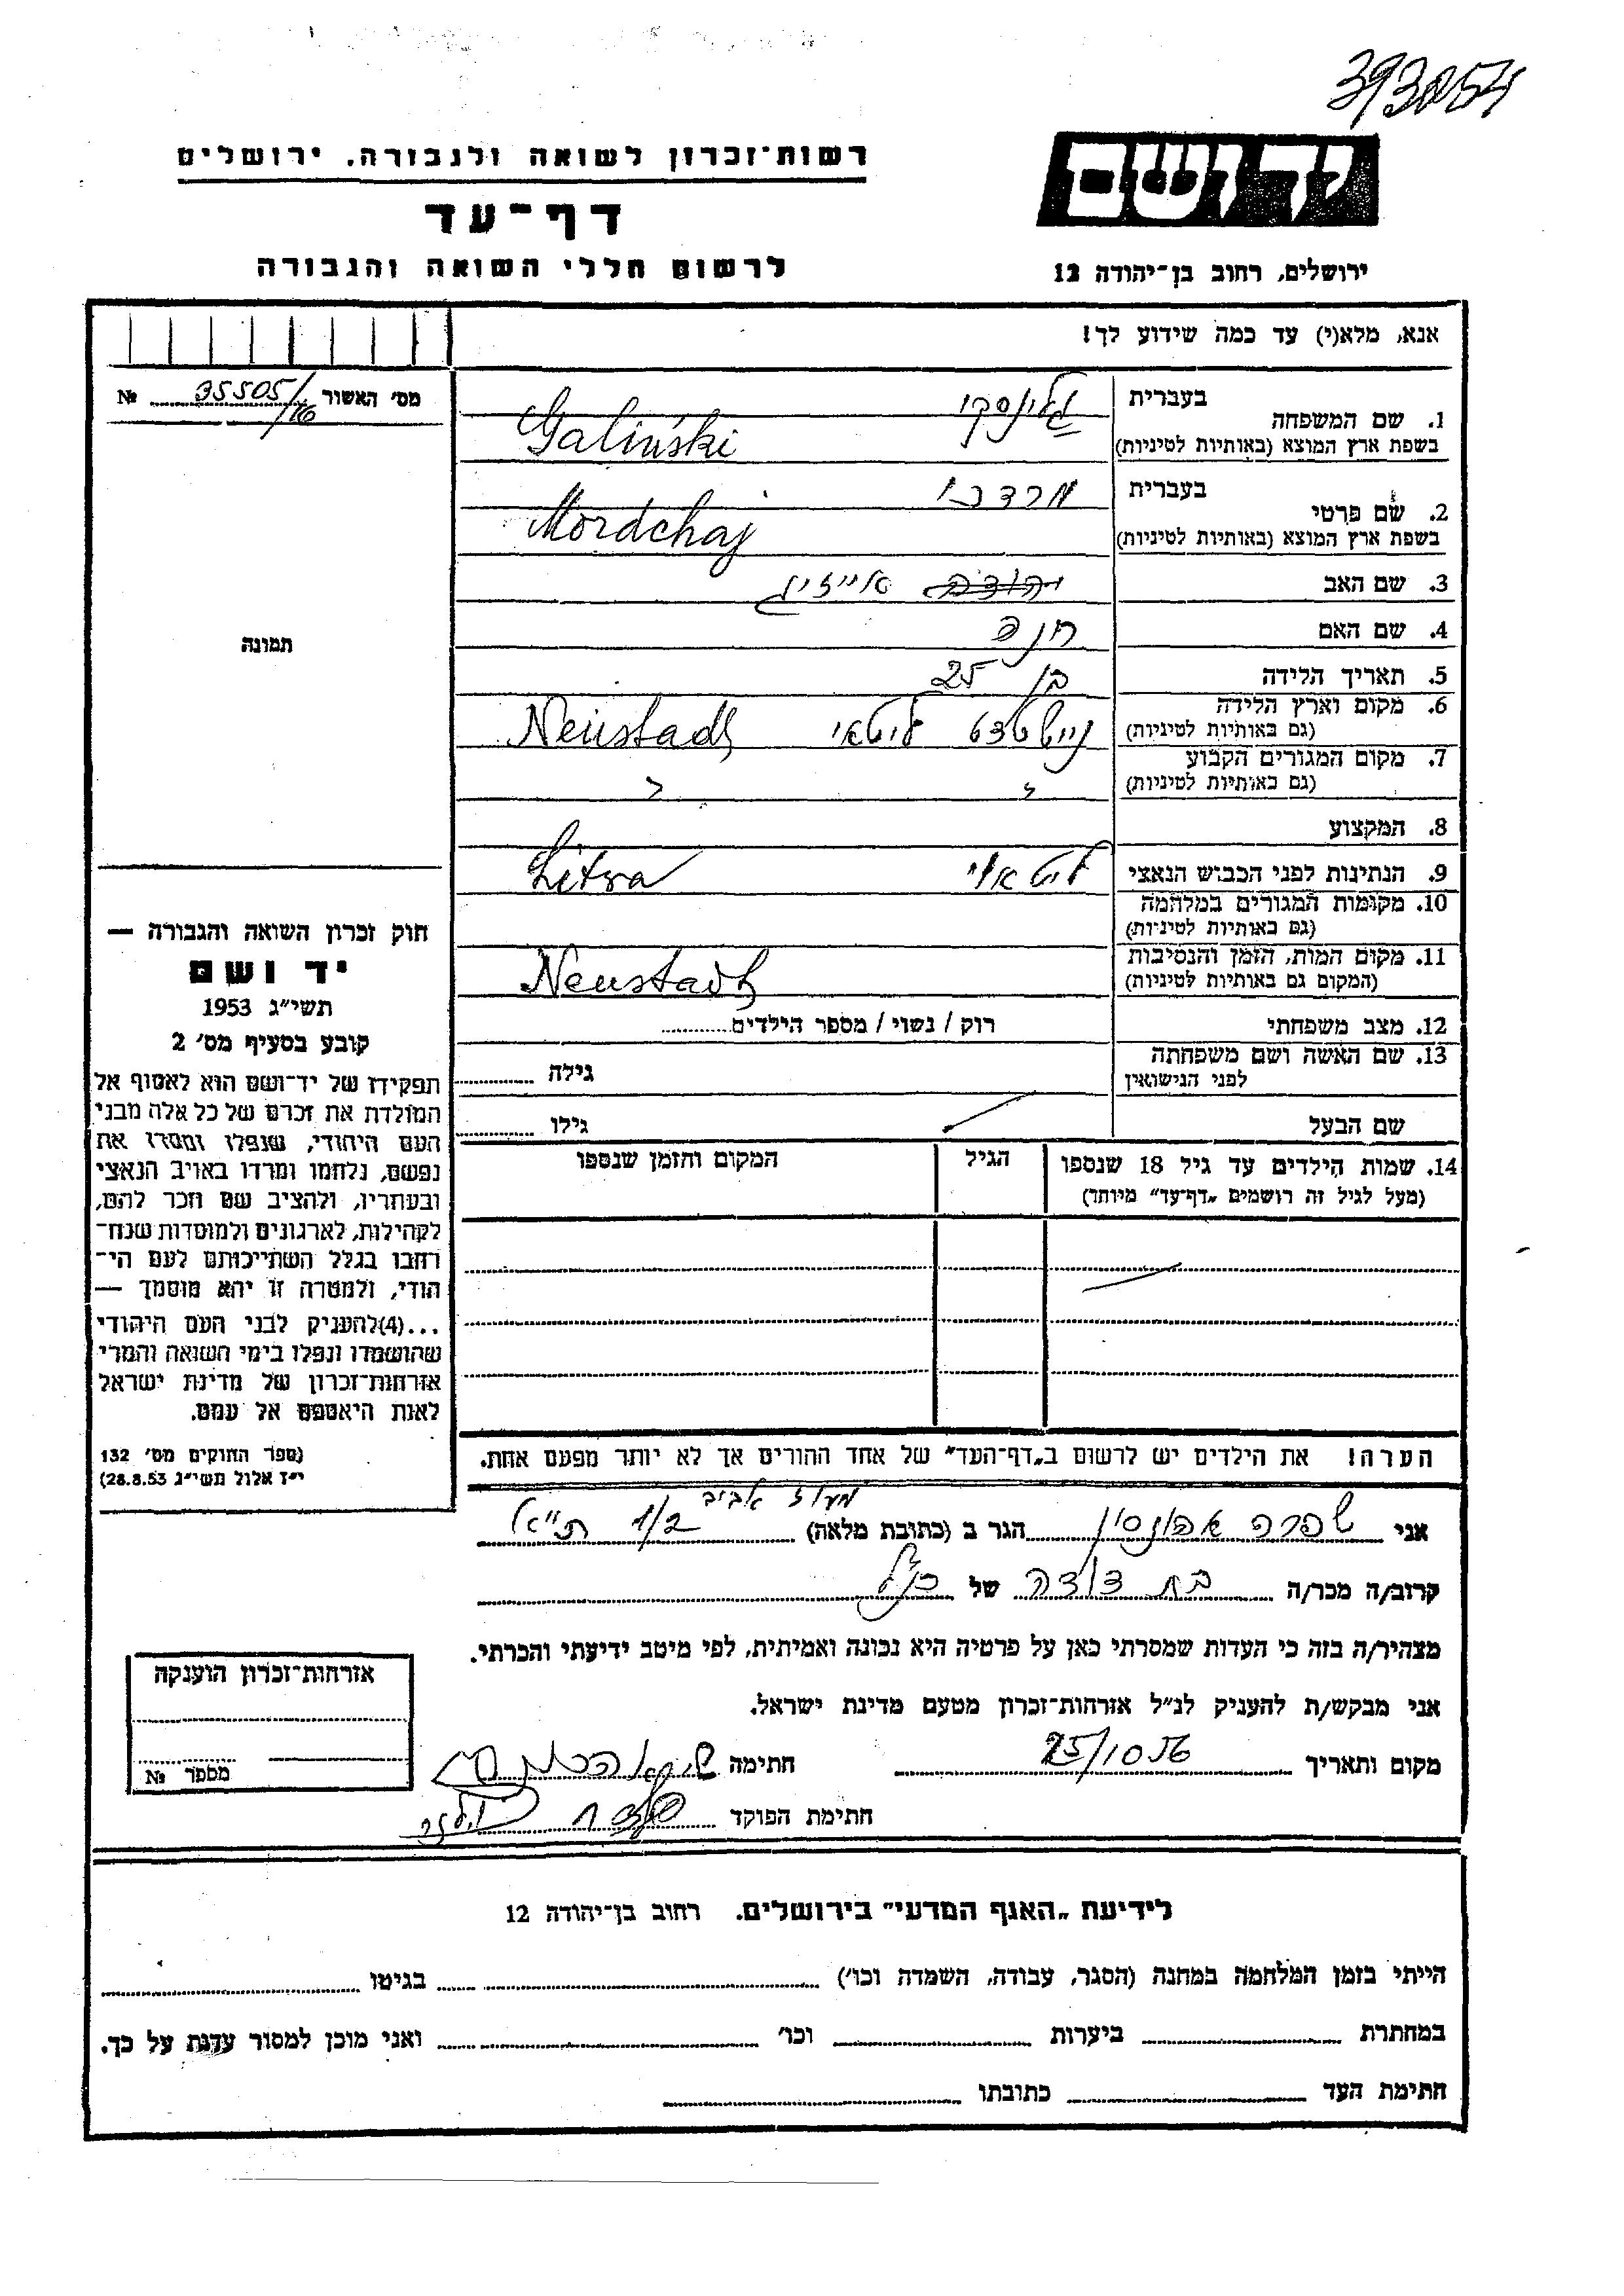 393054
יד ושם
רשות־זכרון לשואה ולגבורה, ירושלים
דף־עד
לרשום חללי השואה והגבורה
ירושלים, רחוב בן־יהודה 12
אנא, מלא(י) עד כמה שידוע לך!
מס׳ האשור 35505/16 №
תמונה
1. שם המשפחה בעברית גלינסקי
בשפת ארץ המוצא (באותיות לטיניות) Galiński
2. שם פרטי בעברית מרדכי
בשפת ארץ המוצא (באותיות לטיניות) Mordchaj
3. שם האב
4. שם האם חנה
5. תאריך הלידה בן 25
6. מקום וארץ הלידה (גם באותיות לטיניות) ניישטדט ליטאי Neustadt
7. מקום המגורים הקבוע (גם באותיות לטיניות)
8. המקצוע
9. הנתינות לפני הכבוש הנאצי ליטאי Litwa
10. מקומות המגורים במלחמה (גם באותיות לטיניות)
11. מקום המות, הזמן והנסיבות (המקום גם באותיות לטיניות) Neustadt
12. מצב משפחתי רוק / נשוי / מספר הילדים
13. שם האשה ושם משפחתה לפני הנישואין גילה
שם הבעל גילו
14. שמות הילדים עד גיל 18 שנספו הגיל המקום והזמן שנספו
(מעל לגיל זה רושמים „דף־עד” מיוחד)
חוק זכרון השואה והגבורה —
יד ושם
תשי״ג 1953
קובע בסעיף מס׳ 2
תפקידו של יד־ושם הוא לאסוף אל
המולדת את זכרם של כל אלה מבני
העם היהודי, שנפלו ומסרו את
נפשם, נלחמו ומרדו באויב הנאצי
ובעוזריו, ולהציב שם וזכר להם,
לקהילות, לארגונים ולמוסדות שנח־
רבו בגלל השתייכותם לעם הי־
הודי, ולמטרה זו יהא מוסמך —
...(4)להעניק לבני העם היהודי
שהושמדו ונפלו בימי השואה והמרי
אזרחות־זכרון של מדינת ישראל
לאות היאספם אל עמם.
(ספר החוקים מס׳ 132
י״ז אלול תשי״ג 28.8.53)
הערה! את הילדים יש לרשום ב„דף־העד” של אחד ההורים אך לא יותר מפעם אחת.
אני שפרה אהרונסון הגר ב (כתובת מלאה) מעוז אביב 1/2 ת״א
קרוב/ה מכר/ה בת דודה של הנ״ל
מצהיר/ה בזה כי העדות שמסרתי כאן על פרטיה היא נכונה ואמיתית, לפי מיטב ידיעתי והכרתי.
אני מבקש/ת להעניק לנ״ל אזרחות־זכרון מטעם מדינת ישראל.
מקום ותאריך 25/10 56 חתימה
חתימת הפוקד
אזרחות־זכרון הוענקה
מספר №
לידיעת „האגף המדעי” בירושלים. רחוב בן־יהודה 12
הייתי בזמן המלחמה במחנה (הסגר, עבודה, השמדה וכו׳) בגיטו
במחתרת ביערות וכו׳ ואני מוכן למסור עדות על כך.
חתימת העד כתובתו